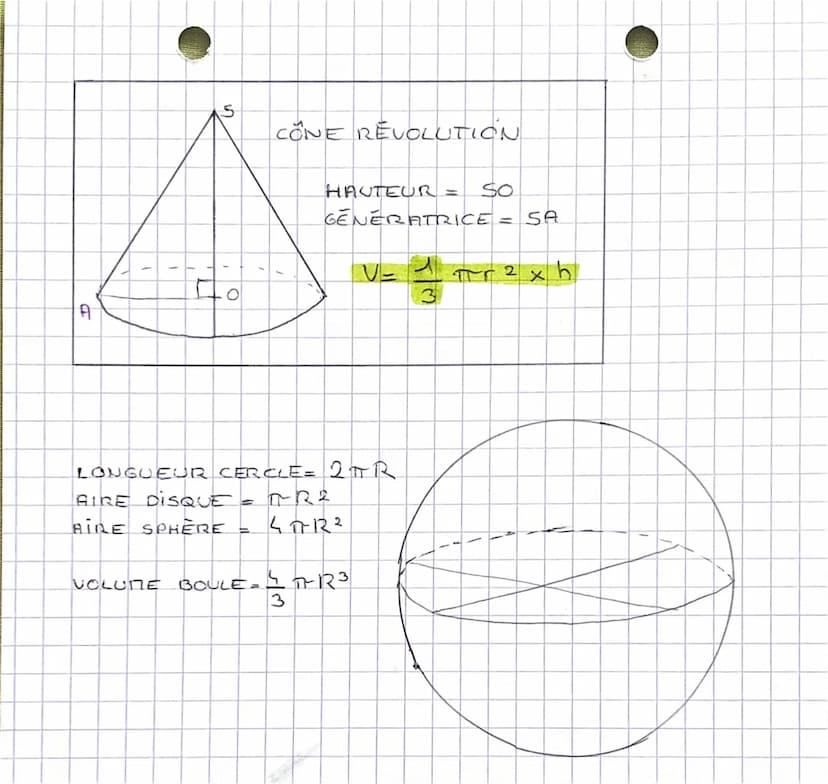 S
CÔNE RÉVOLUTION
HAUTEUR = SO
GÉNÉRATRICE = SA
V = 1/3 πr² × h
O
A
LONGUEUR CERCLE = 2πR
AIRE DISQUE = πR²
AIRE SPHÈRE = 4πR²
VOLUME BOULE = 4/3 πR³